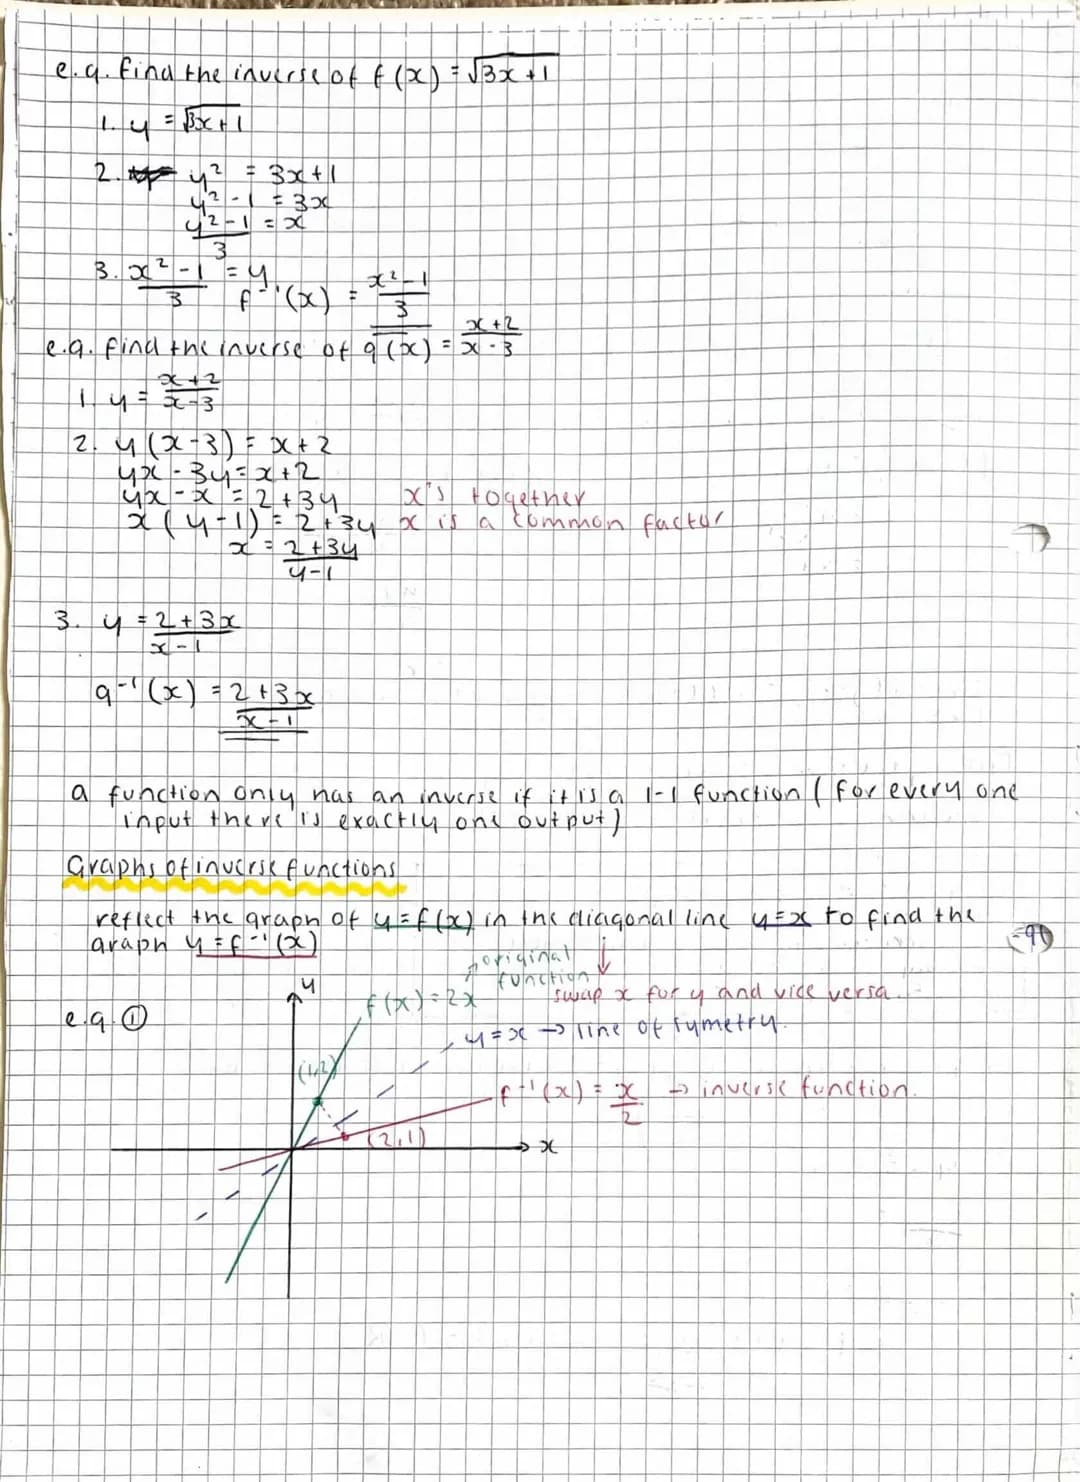 e.g. find the inverse of f(x) = √3x+1
1. y = √3x+1
2. y² = 3x+1
y²-1 = 3x
y²-1/3 = x
3. x²-1/3 = y
f⁻¹(x) = x²-1/3
e.g. find the inverse of g(x) = x+2/x-3
1. y = x+2/x-3
2. y(x-3) = x+2
yx-3y = x+2
yx-x = 2+3y x's together
x(y-1) = 2+3y x is a common factor
x = 2+3y/y-1
3. y = 2+3x/x-1
g⁻¹(x) = 2+3x/x-1
a function only has an inverse if it is a 1-1 function (for every one
input there is exactly one output)
Graphs of inverse functions
reflect the graph of y=f(x) in the diagonal line y=x to find the
graph y=f⁻¹(x)
original
function
swap x for y and vice versa.
e.g. ①
y
f(x)=2x
y=x → line of symetry.
(1,2)
f⁻¹(x) = x/2 → inverse function.
(2,1)
x